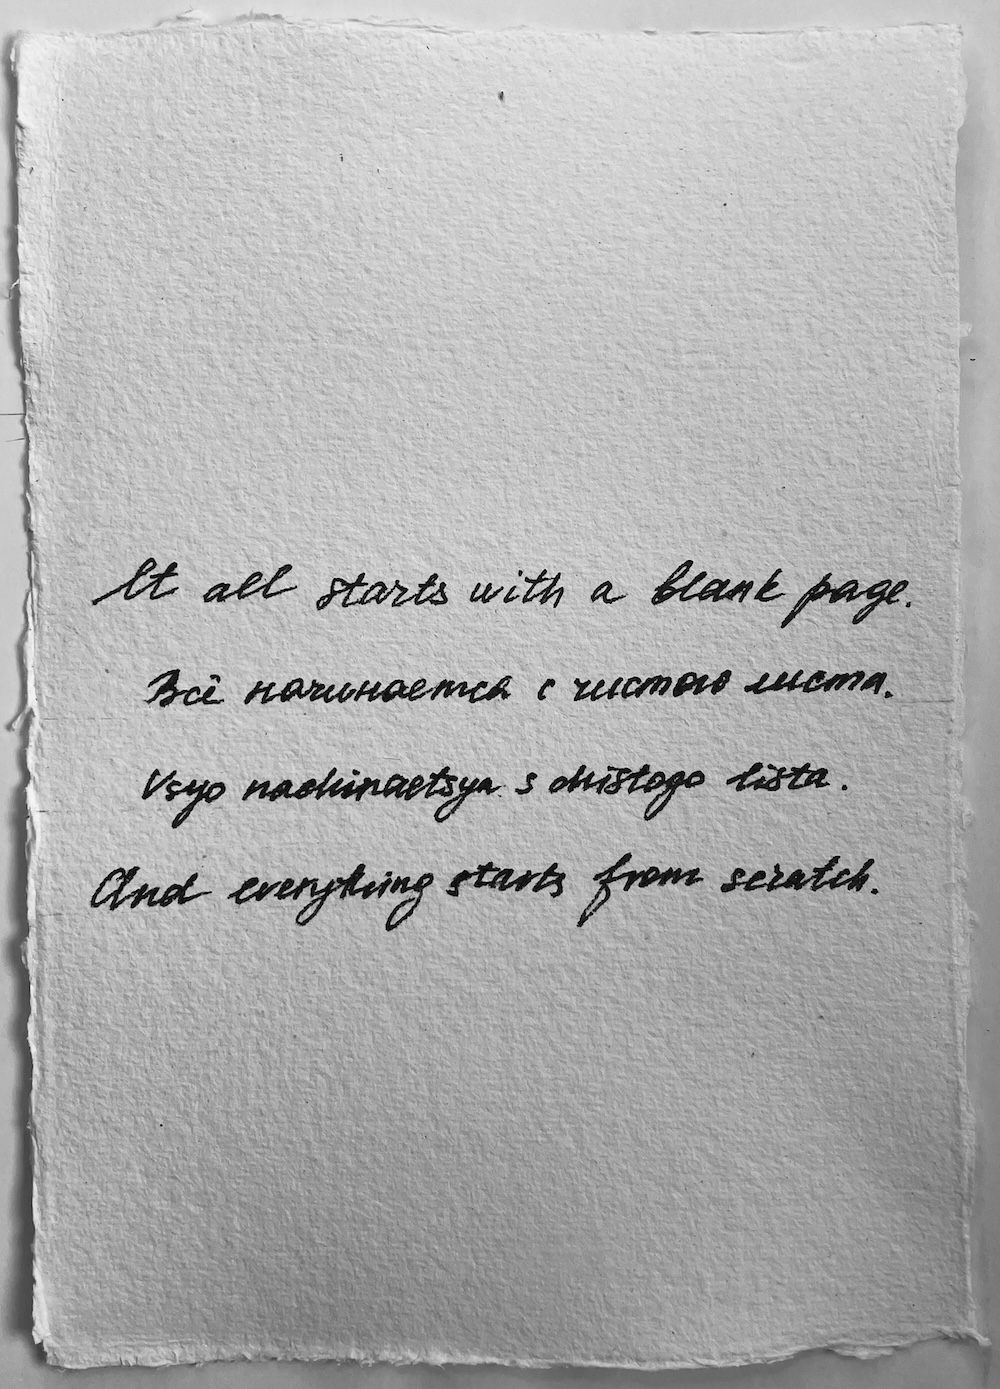 It all starts with a blank page.
Всё начинается с чистого листа.
Vsyo nachinaetsya s chistogo lista.
And everything starts from scratch.